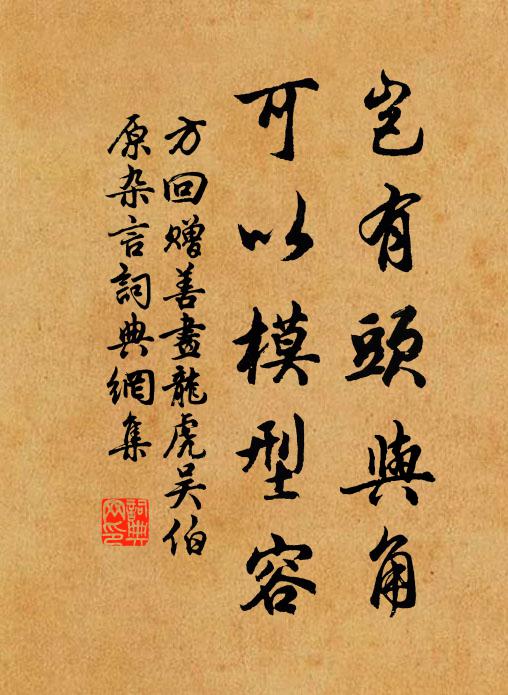 豈有頭與角
可以模型容
方回赠善畫龍虎吴伯
原杂言詞典網集
詞典
网印